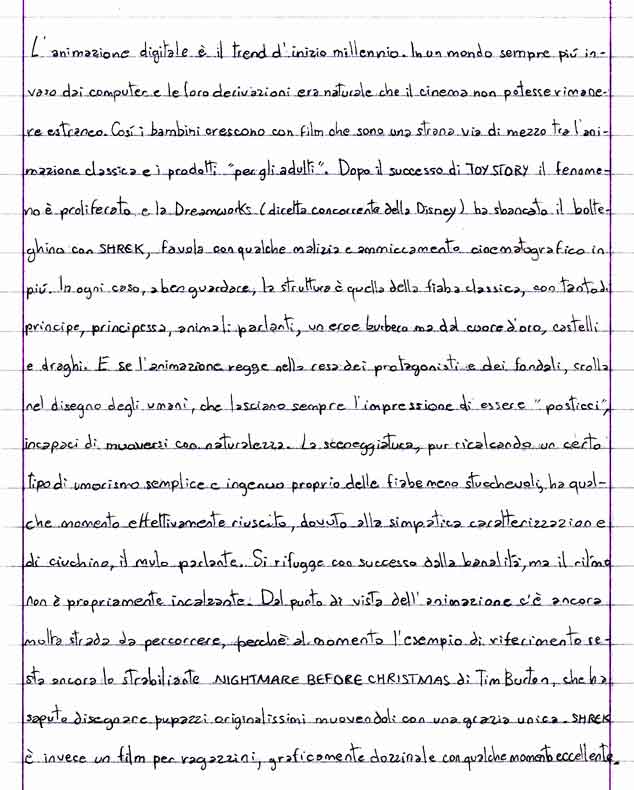 L'animazione digitale è il trend d'inizio millennio. In un mondo sempre più in-
vaso dai computer e le loro derivazioni era naturale che il cinema non potesse rimane-
re estraneo. Così i bambini crescono con film che sono una strana via di mezzo tra l'ani-
mazione classica e i prodotti "per gli adulti". Dopo il successo di TOY STORY il fenome-
no è proliferato e la Dreamworks (diretta concorrente della Disney) ha sbancato il botte-
ghino con SHREK, favola con qualche malizia e ammiccamento cinematografico in
più. In ogni caso, a ben guardare, la struttura è quella della fiaba classica, con tanto di
principe, principessa, animali parlanti, un eroe burbero ma dal cuore d'oro, castelli
e draghi. E se l'animazione regge nella resa dei protagonisti e dei fondali, crolla
nel disegno degli umani, che lasciano sempre l'impressione di essere "posticci",
incapaci di muoversi con naturalezza. La sceneggiatura, pur ricalcando un certo
tipo di umorismo semplice e ingenuo proprio delle fiabe meno stucchevoli, ha qual-
che momento effettivamente riuscito, dovuto alla simpatica caratterizzazione
di ciuchino, il mulo parlante. Si rifugge con successo dalla banalità, ma il ritmo
non è propriamente incalzante. Dal punto di vista dell'animazione c'è ancora
molta strada da percorrere, perchè al momento l'esempio di riferimento re-
sta ancora lo strabiliante NIGHTMARE BEFORE CHRISTMAS di Tim Burton, che ha
saputo disegnare pupazzi originalissimi muovendoli con una grazia unica. SHREK
è invece un film per ragazzini, graficamente dozzinale con qualche momento eccellente.